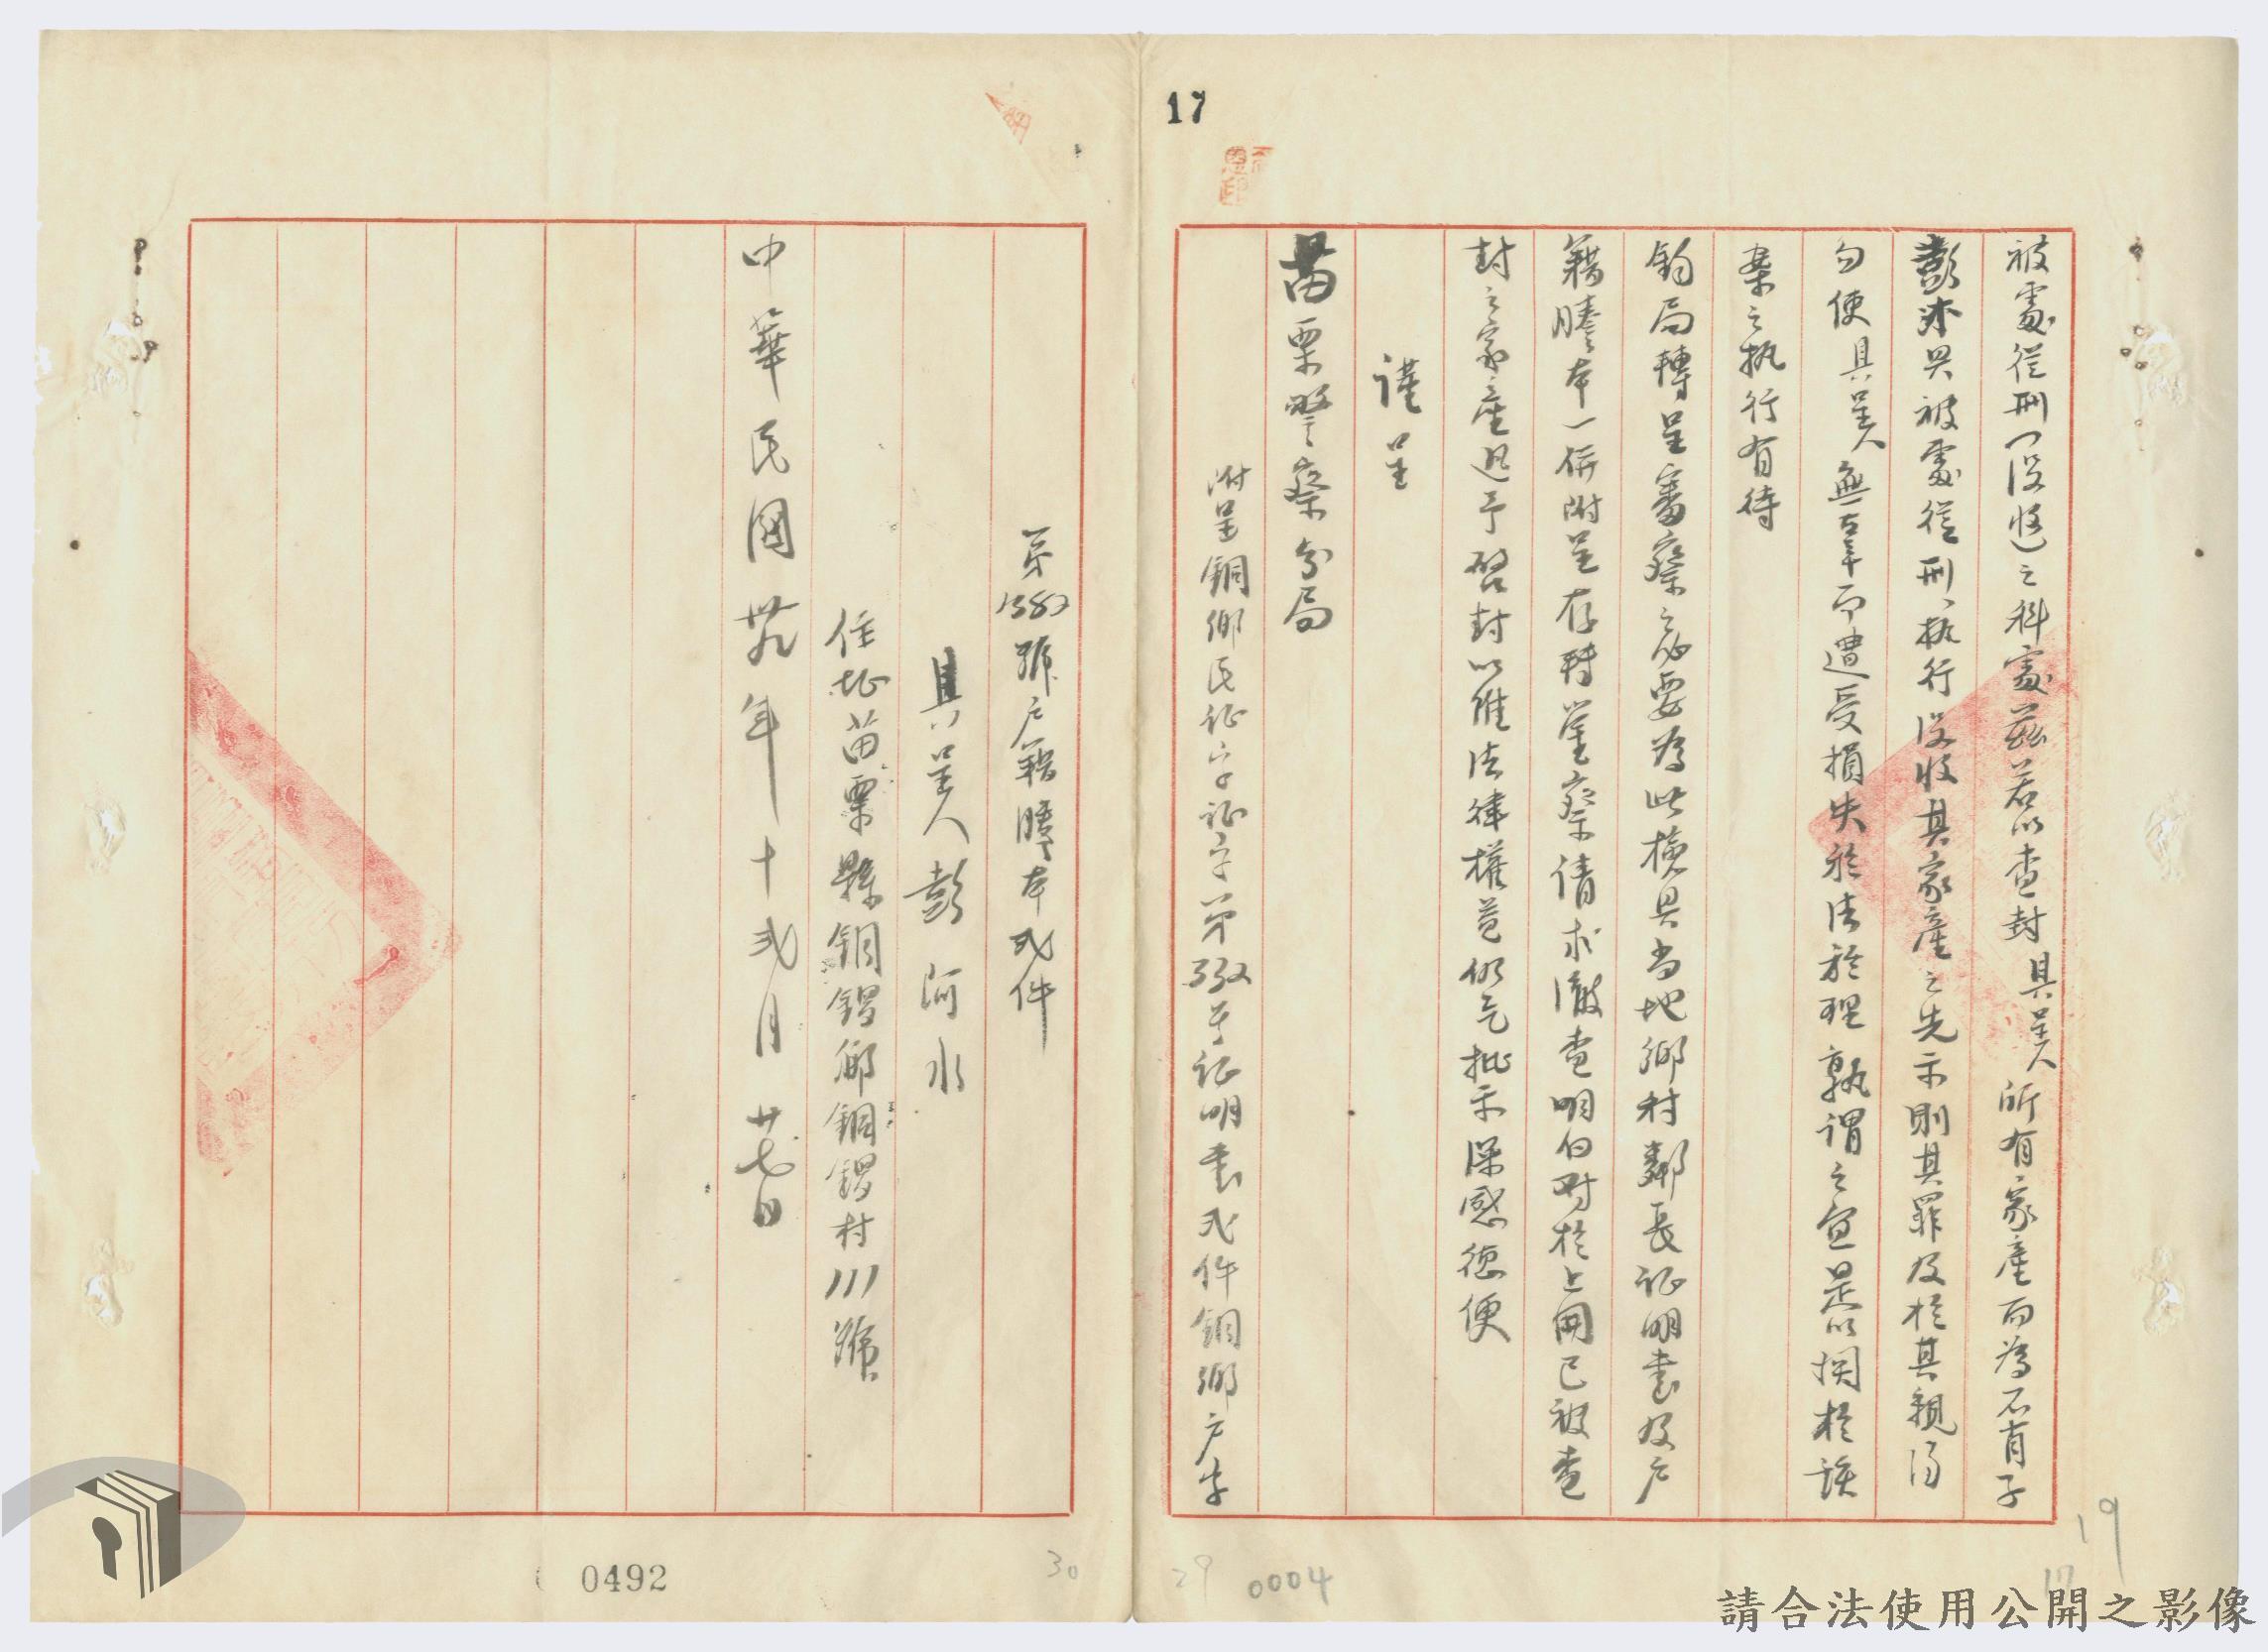 17
被處徒刑(沒收)之科處茲若以查封具呈人所有家產而為不肖子
彭沐興被處徒刑執行沒收其家產之先示則其罪及於其親得
勿使具呈人無辜而遭受損失於法於理孰謂之宜是以攔於該
案之執行有待
鈞局轉呈審察之必要為此檢具當地鄉村鄰長証明書及戶
籍謄本一併附呈存轉鑒察倩求澈查明白對於上開已被查
封之家產迅予啓封以維法律權益仍乞批示深感德便
謹呈
苗栗警察分局
附呈銅鄉民証字証字第332号証明書弍件銅鄉戶字
第1582號戶籍謄本弍件
具呈人彭阿水
住址苗栗縣銅鑼鄉銅鑼村111號
中華民國卅九年十弍月廿七日
0492
30
29
0004
19
17
請合法使用公開之影像